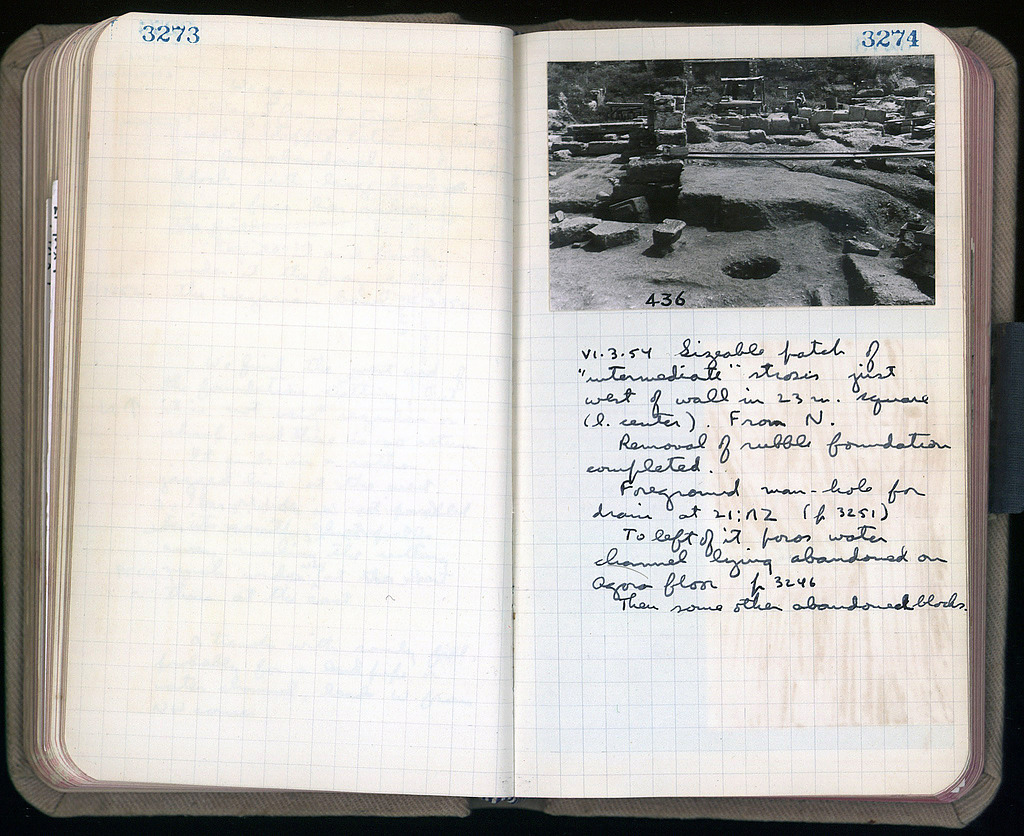 3273
3274
436
VI.3.54 Sizeable patch of
"intermediate" strosis just
west of wall in 23 m. square
(l. center). From N.
Removal of rubble foundation
completed.
Foreground man-hole for
drain at 21:ΛΖ (p 3251)
To left of it poros water
channel lying abandoned on
Agora floor p 3246
Then some other abandoned blocks.